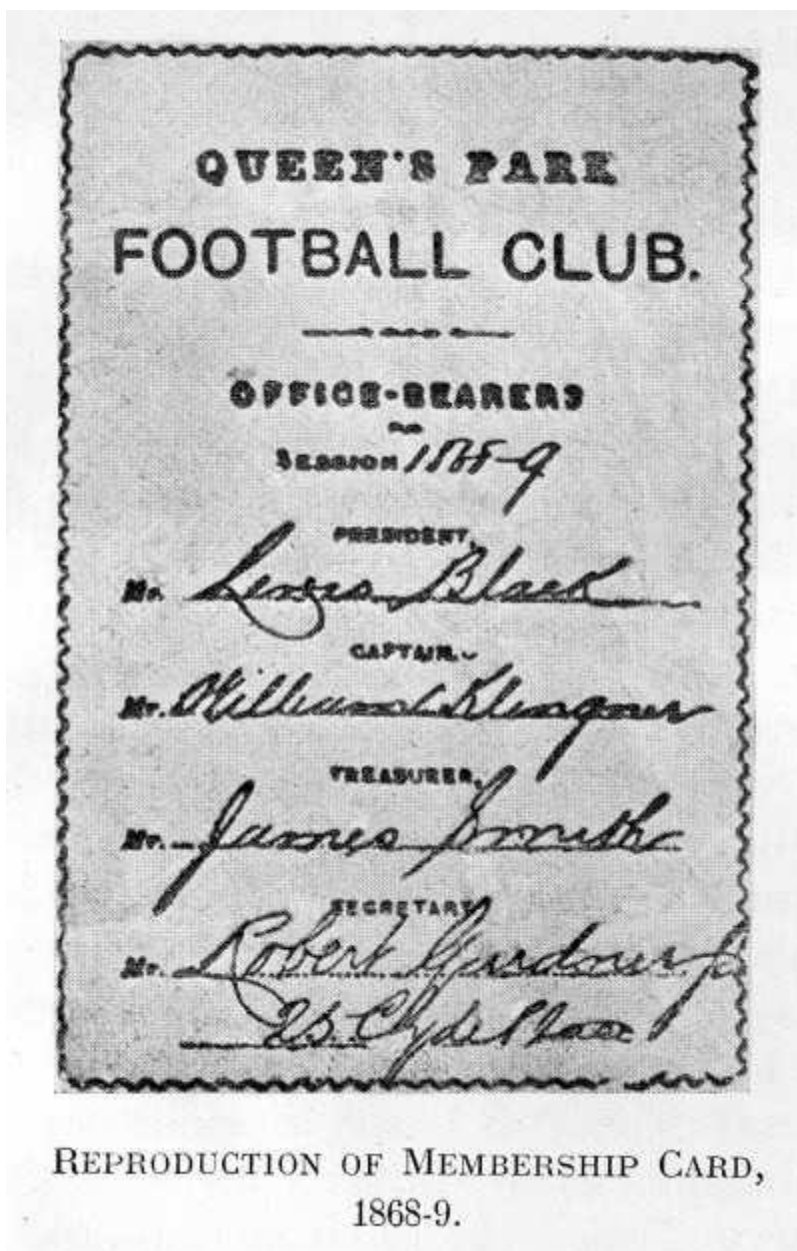 QUEEN'S PARK
FOOTBALL CLUB.
OFFICE-BEARERS
SESSION 1868-9
PRESIDENT,
Mr. Lewis Black
CAPTAIN.
Mr. William Klingner
TREASURER,
Mr. James Smith
SECRETARY
Mr. Robert Gardner
Clyde Place
REPRODUCTION OF MEMBERSHIP CARD,
1868-9.